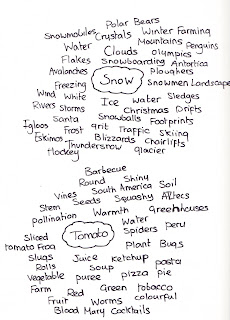 Polar Bears
Snowmobiles Crystals Winter Farming
Water Mountains Penguins
Clouds Olympics
Flakes Snowboarding Antartica
Avalanches Ploughers
Freezing Snow Snowmen Landscape
Wind White Ice Water Sledges
Rivers Storms Christmas Drifts
Santa Snowballs Footprints
Igloos Frost grit Traffic Skiing
Eskimos Blizzards Chairlifts
Thundersnow glacier
Hockey
Barbecue
Round Shiny
Vines South America Soil
Stem Seeds Squashy Aztecs
pollination Warmth greenhouses
Water
Tomato Spiders Peru
Sliced
tomato Frog Plant Bugs
Slugs Juice Ketchup pasta
Rolls Soup
Vegetable puree pizza pie
Farm Red Green tobacco
Fruit Worms colourful
Blood Mary Cocktails